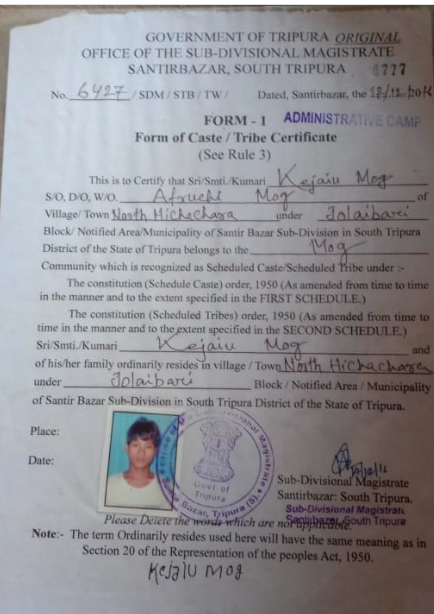 GOVERNMENT OF TRIPURA ORIGINAL
OFFICE OF THE SUB-DIVISIONAL MAGISTRATE
SANTIRBAZAR, SOUTH TRIPURA 0777
No. 6427 / SDM / STB / TW / Dated, Santirbazar, the
FORM - 1 ADMINISTRATIVE CAMP
Form of Caste / Tribe Certificate
(See Rule 3)
This is to Certify that Sri/Smti./Kumari Kejaiu Mog
S/O, D/O, W/O. Afruchi Mog of
Village/ Town North Hichachara under Jolaibari
Block/ Notified Area/Municipality of Santir Bazar Sub-Division in South Tripura
District of the State of Tripura belongs to the Mog
Community which is recognized as Scheduled Caste/Scheduled Tribe under :-
The constitution (Schedule Caste) order, 1950 (As amended from time to time
in the manner and to the extent specified in the FIRST SCHEDULE.)
The constitution (Scheduled Tribes) order, 1950 (As amended from time to
time in the manner and to the extent specified in the SECOND SCHEDULE.)
Sri/Smti./Kumari Kejaiu Mog and
of his/her family ordinarily resides in village / Town North Hichachara
under Jolaibari Block / Notified Area / Municipality
of Santir Bazar Sub-Division in South Tripura District of the State of Tripura.
Place:
Date:
Sub-Divisional Magistrate
Govt. of
Tripura
Bazar, Tripura (S)
Sub-Divisional Magistrate
Santirbazar: South Tripura.
Sub-Divisional Magistrate
Santirbazar, South Tripura
Please Delete the words which are not applicable.
Note:- The term Ordinarily resides used here will have the same meaning as in
Section 20 of the Representation of the peoples Act, 1950.
Kejaiu Mog